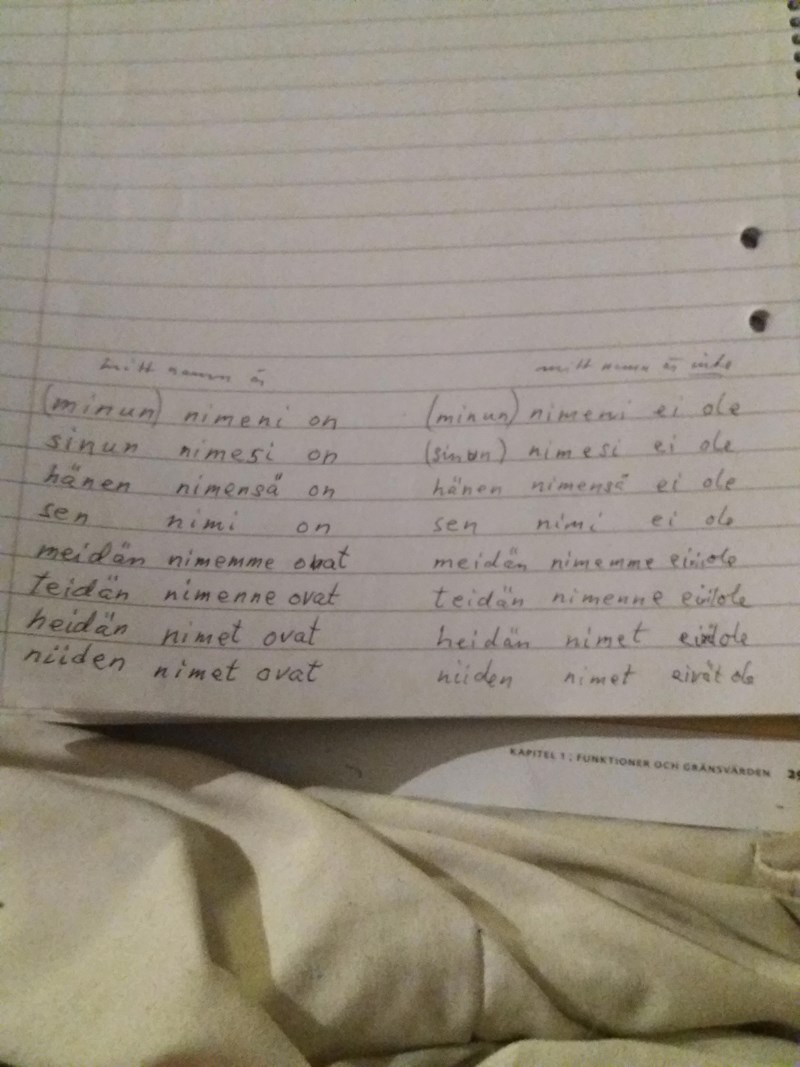 mitt namn är mitt namn är inte
(minun) nimeni on (minun) nimeni ei ole
sinun nimesi on (sinun) nimesi ei ole
hänen nimensä on hänen nimensä ei ole
sen nimi on sen nimi ei ole
meidän nimemme ovat meidän nimemme ole
teidän nimenne ovat teidän nimenne ole
heidän nimet ovat heidän nimet ole
niiden nimet ovat niiden nimet eivät ole
KAPITEL 1: FUNKTIONER OCH GRÄNSVÄRDEN